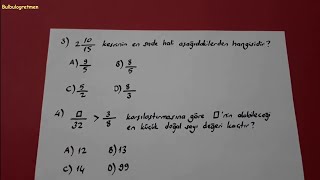 Bulbulogretmen
3) 2 10/15 kesrinin en sade hali aşağıdakilerden hangisidir?
A) 9/5 B) 8/5
C) 5/2 D) 8/3
4) □/32 > 3/8 karşılaştırmasına göre □'nin alabileceği
en küçük doğal sayı değeri kaçtır?
A) 12 B) 13
C) 14 D) 99